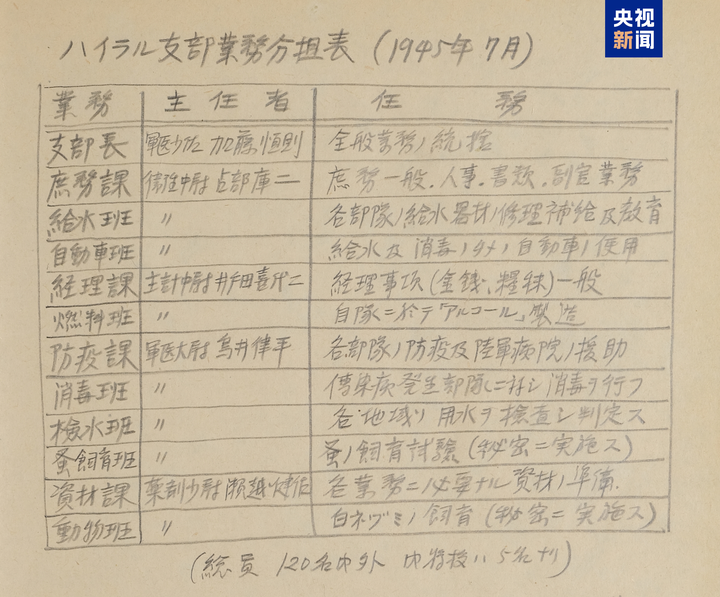 央视
新闻
ハイラル支部業務分担表 (1945年7月)
業務 主任者 任務
支部長 軍医少佐 加藤恒則 全般業務ノ統括
庶務課 衛生中尉 占部庫二 庶務一般、人事、書類、副官業務
給水班 〃 各部隊ノ給水器材ノ修理補給及教育
自動車班 〃 給水及消毒ノタメノ自動車ノ使用
経理課 主計中尉 井田喜代二 経理事項(金銭、糧秣)一般
燃料班 〃 自隊ニ於テ「アルコール」製造
防疫課 軍医大尉 鳥井 各部隊ノ防疫及陸軍病院ノ援助
消毒班 〃 傳染病発生部隊ニ対シ消毒ヲ行フ
檢水班 〃 各地域ノ用水ヲ檢査シ判定ス
蚤飼育班 〃 蚤ノ飼育試驗(秘密ニ実施ス)
資材課 薬剤少尉 各業務ニ必要ナル資材ノ準備
動物班 〃 白ネヅミノ飼育(秘密ニ実施ス)
(総員 120名内外 内将校ハ5名ナリ)